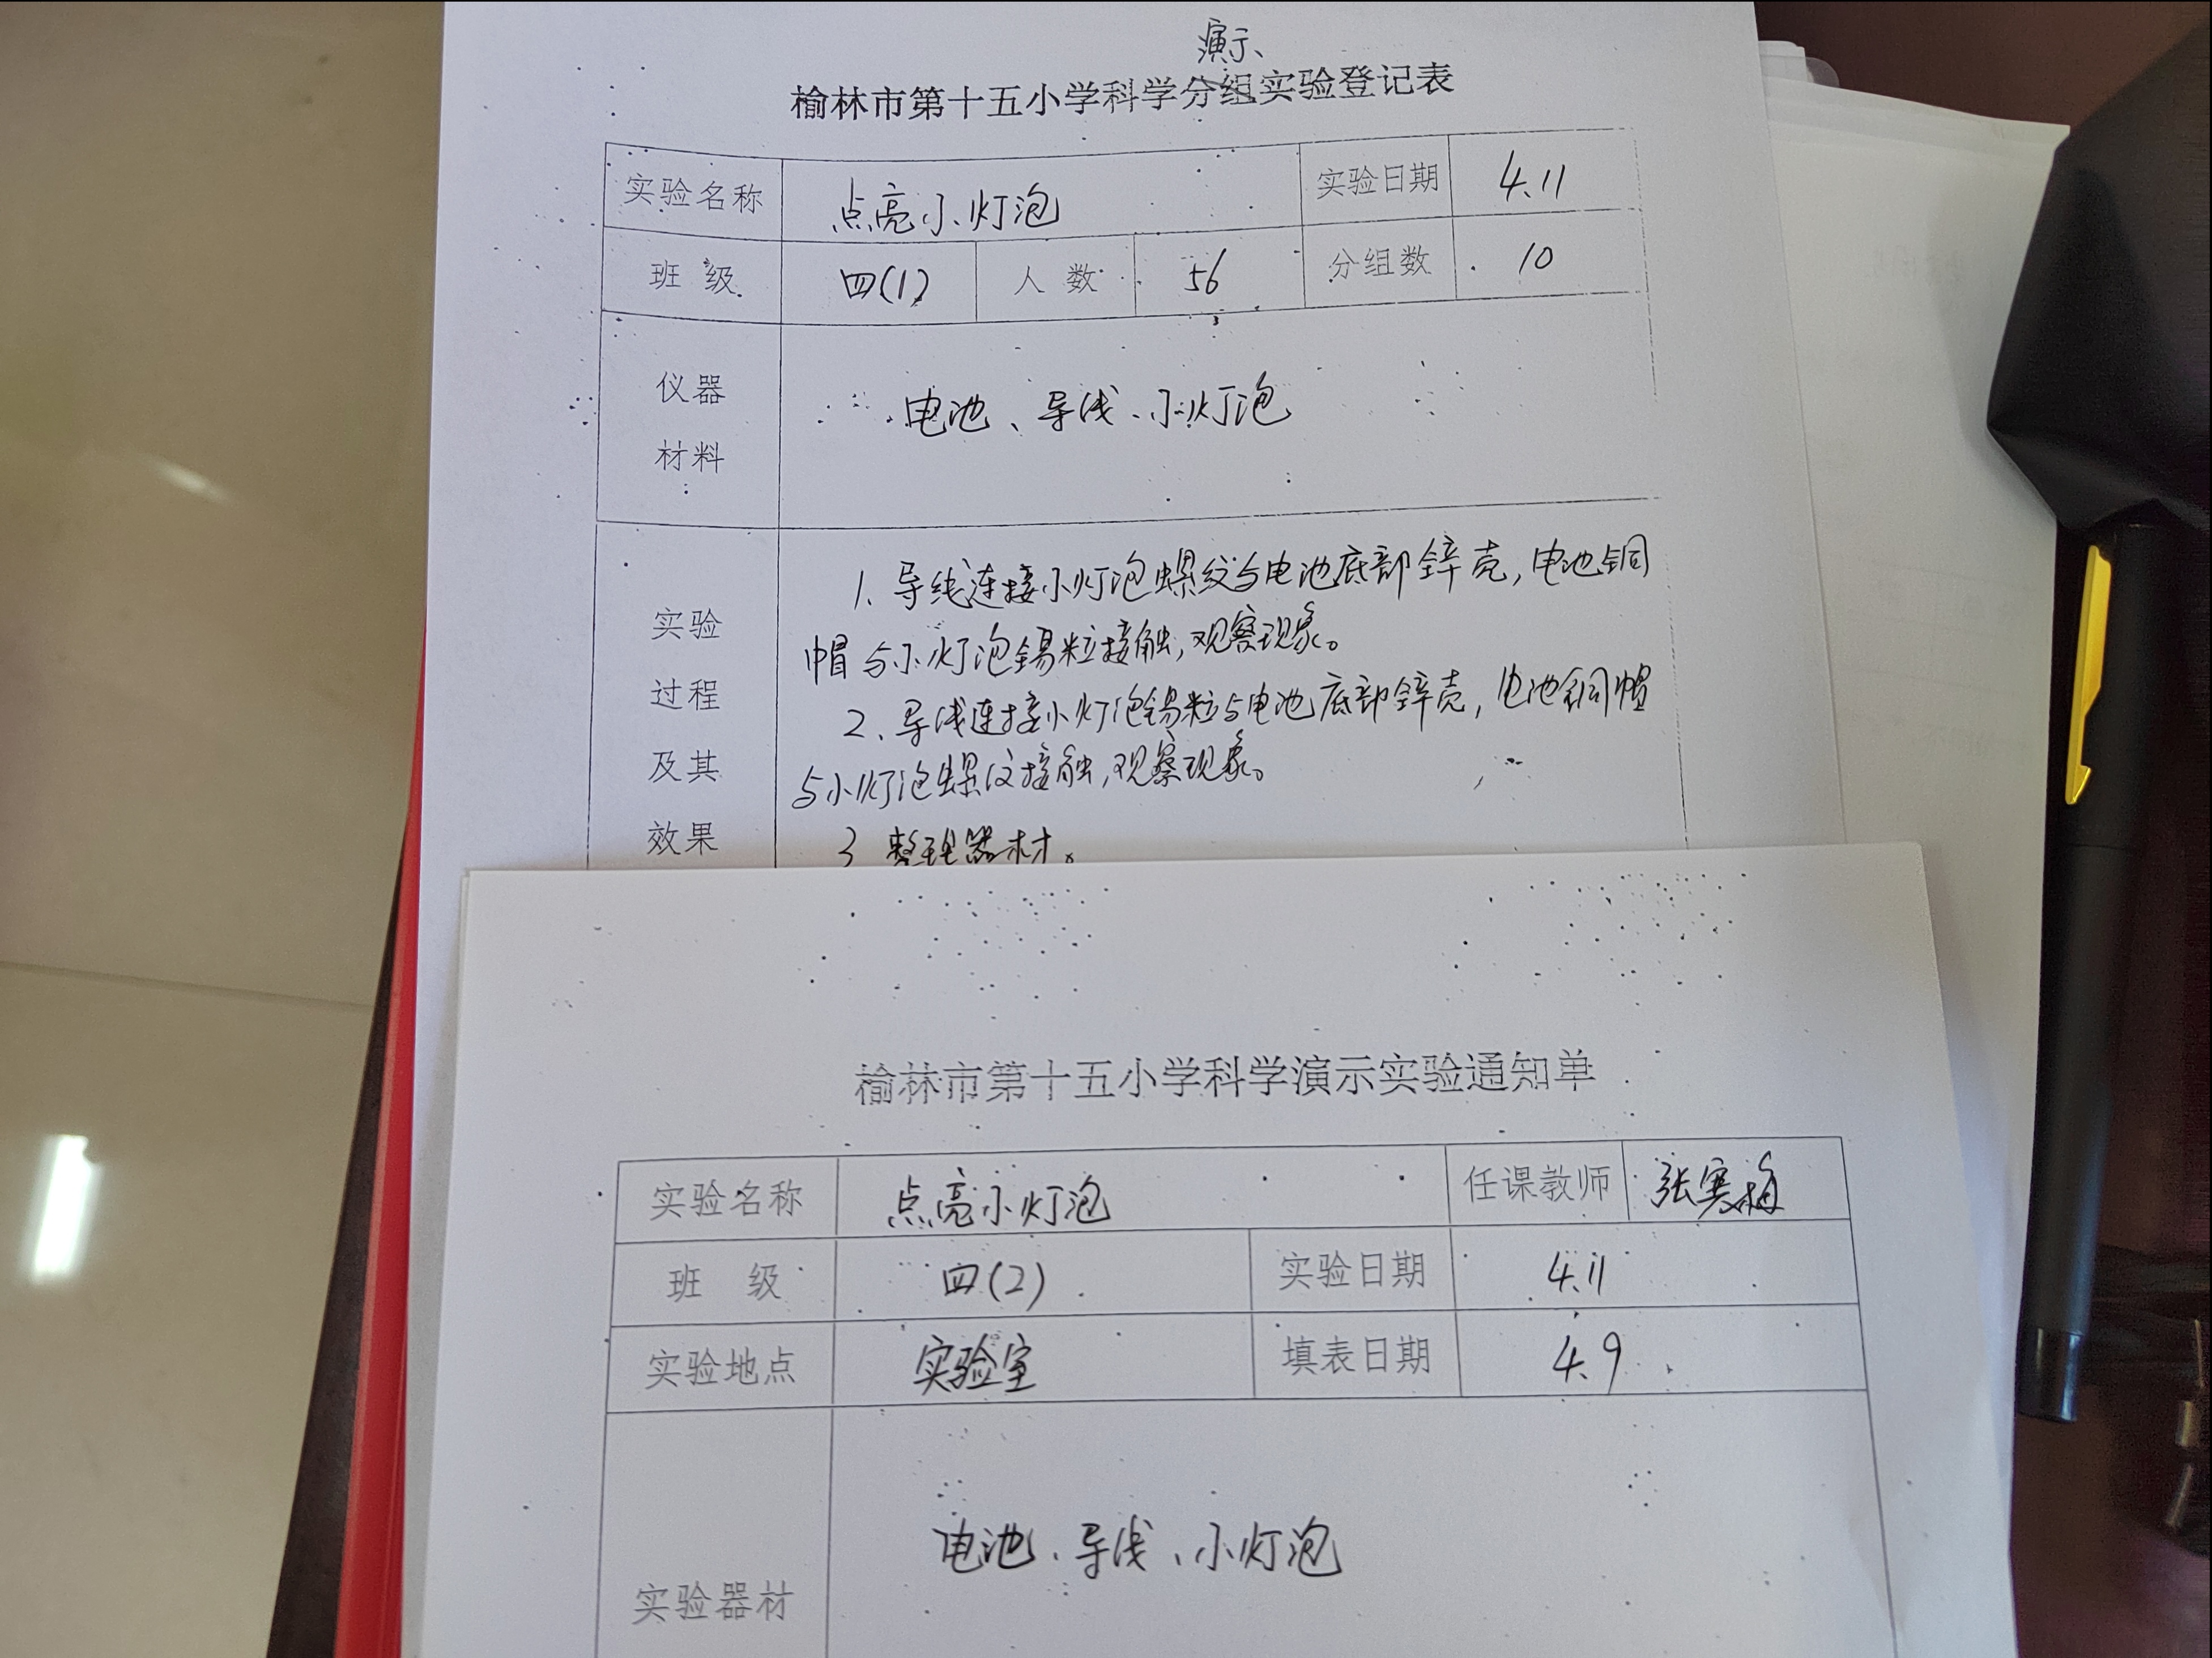 演示
榆林市第十五小学科学分组实验登记表
实验名称 点亮小灯泡 实验日期 4.11
班 级 四(1) 人 数 56 分组数 10
仪器
材料
电池、导线、小灯泡
实验
过程
及其
效果
1、导线连接小灯泡螺纹与电池底部锌壳,电池铜
帽与小灯泡锡粒接触,观察现象。
2、导线连接小灯泡锡粒与电池底部锌壳,电池铜帽
与小灯泡螺纹接触,观察现象。
3 整理器材。
榆林市第十五小学科学演示实验通知单
实验名称 点亮小灯泡 任课教师 张寒梅
班 级 四(2) 实验日期 4.11
实验地点 实验室 填表日期 4.9
实验器材 电池、导线、小灯泡